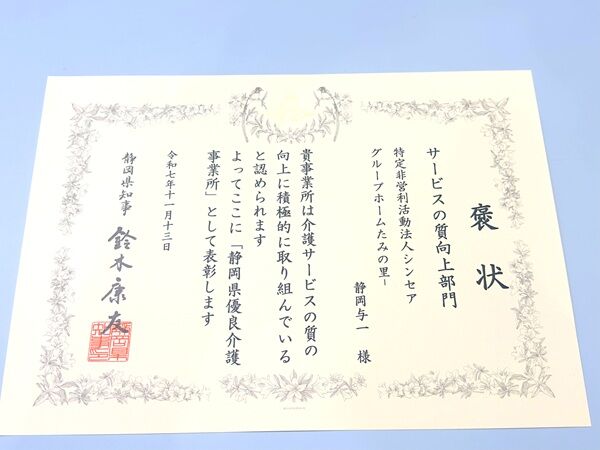 褒状
サービスの質向上部門
特定非営利活動法人シンセア
グループホームたみの里-
静岡与一 様
貴事業所は介護サービスの質の
向上に積極的に取り組んでいる
と認められます
よってここに「静岡県優良介護
事業所」として表彰します
令和七年十一月十三日
静岡県知事 鈴木康友